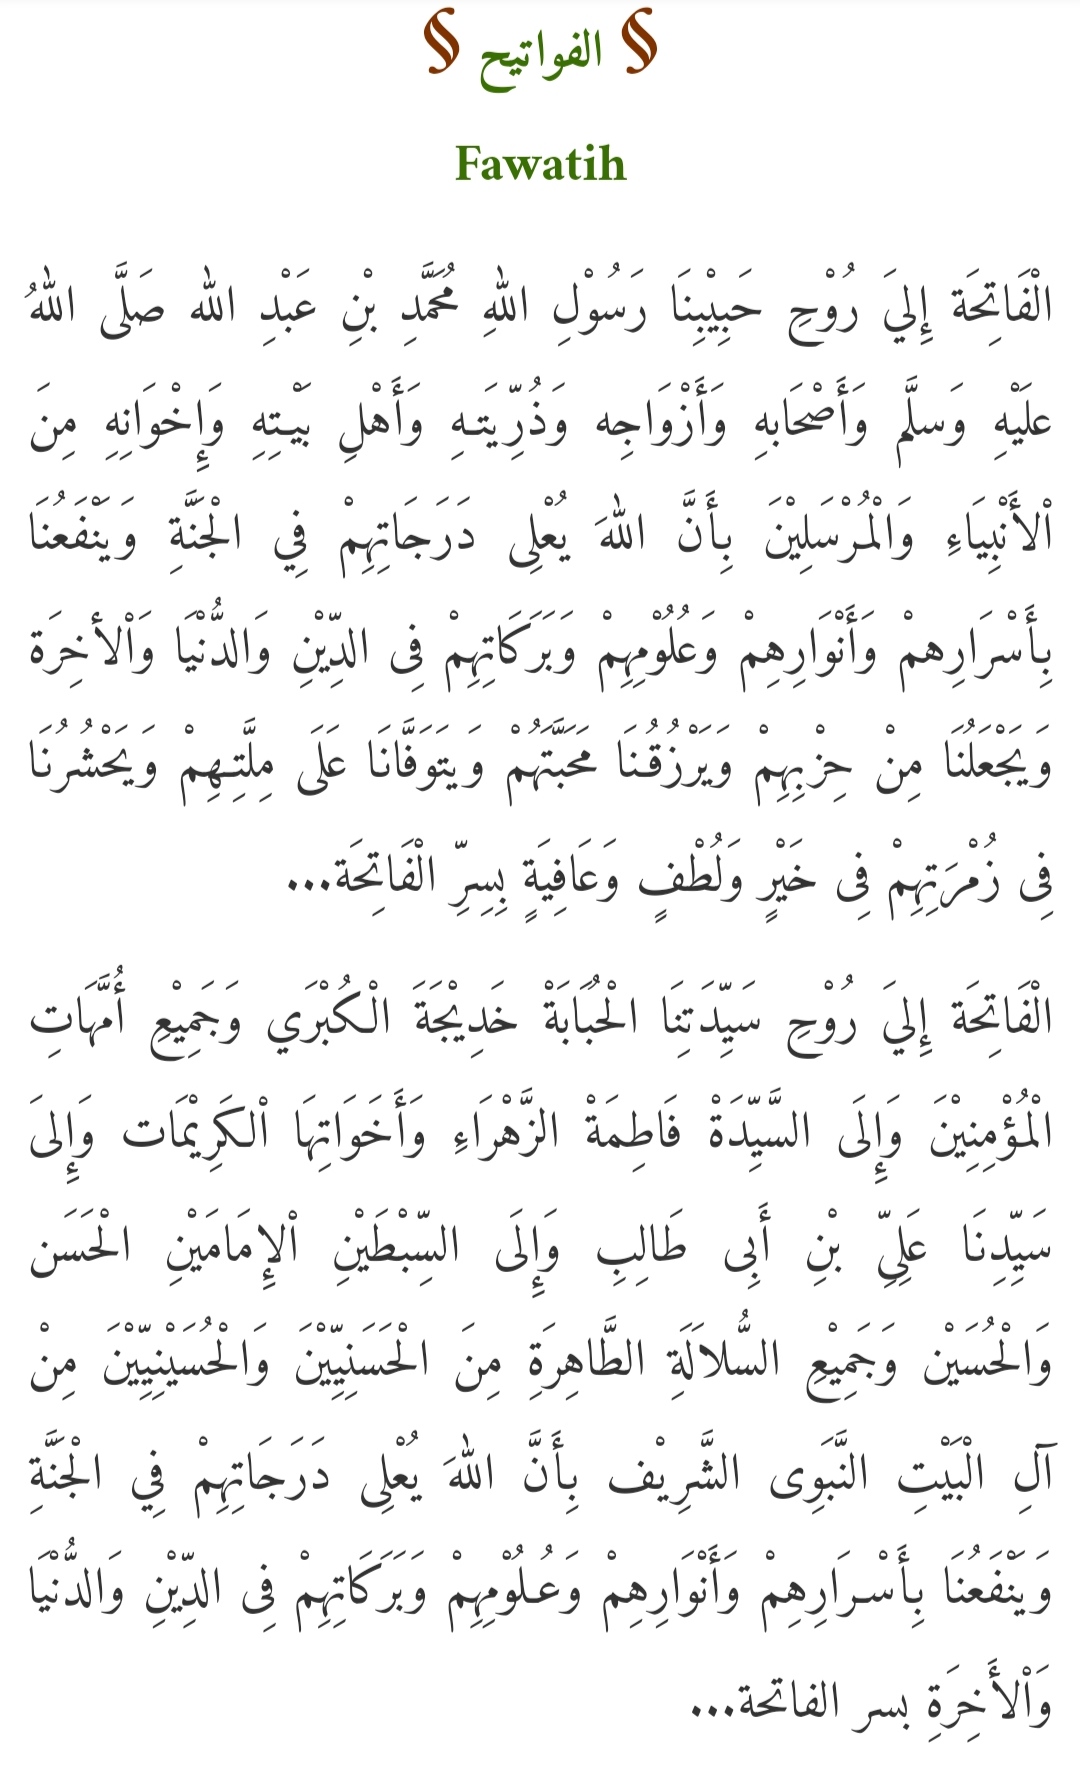 § الفواتيح §
Fawatih
الْفَاتِحَة إِليَ رُوْحِ حَبِيْبِنَا رَسُوْلِ اللهِ مُحَمَّدِ بْنِ عَبْدِ الله صَلَّى اللهُ
عَلَيْهِ وَسلَّم وَأَصْحَابهِ وَأَزْوَاجِه وَذُرِّيَتـهِ وَأَهْلِ بَيْـتِهِ وَإِخْوَانِهِ مِنَ
اْلأَنْبِيَاءِ وَالْمُرْسَلِيْنَ بِأَنَّ اللهَ يُعْلِى دَرَجَاتِهِمْ فِي الْجَنَّةِ وَيَنْفَعُنَا
بِأَسْرَارِهمْ وَأَنْوَارِهِمْ وَعُلُومِهِمْ وَبَرَكَاتِهِمْ فِى الدِّيْنِ وَالدُّنْيَا وَاْلأخِرَة
وَيَجْعَلُنَا مِنْ حِزْبِهِمْ وَيَرْزُقُنَا مَحَبَّتَهُمْ وَيَتَوَفَّانَا عَلَى مِلَّتِـهِمْ وَيَحْشُرُنَا
فِى زُمْرَتِهِمْ فِى خَيْرٍ وَلُطْفٍ وَعَافِيَةٍ بِسِرِّ الْفَاتِحَة...
الْفَاتِحَة إِليَ رُوْحِ سَيِّدَتِنَا الْحُبَابَةْ خَدِيْجَةَ الْكُبْرَي وَجَمِيْعِ أُمَّهَاتِ
الْمُؤْمِنِيْنَ وَإِلَى السَّيِّدَةْ فَاطِمَةْ الزَّهْرَاءِ وَأَخَوَاتِهَا اْلكَرِيْمَات وَإِلىَ
سَيِّدِنَا عَلِيِّ بْنِ أَبِى طَالِبِ وَإِلَى السِّبْطَيْنِ اْلإِمَامَيْنِ الْحَسَن
وَالْحُسَيْن وَجَمِيْعِ السُّلاَلَةِ الطَّاهِرَةِ مِنَ الْحَسَنِيِّيْنَ وَالْحُسَيْنِيِّيْنَ مِنْ
آلِ الْبَيْتِ النَّبَوِى الشَّرِيْف بِأَنَّ اللهَ يُعْلِى دَرَجَاتِهِمْ فِي الْجَنَّةِ
وَيَنْفَعُنَا بِأَسْـرَارِهِمْ وَأَنْوَارِهِمْ وَعُـلُوْمِهِمْ وَبَرَكَاتِهِمْ فِى الدِّيْنِ وَالدُّنْيَا
وَاْلأَخِرَةِ بسر الفاتحة...